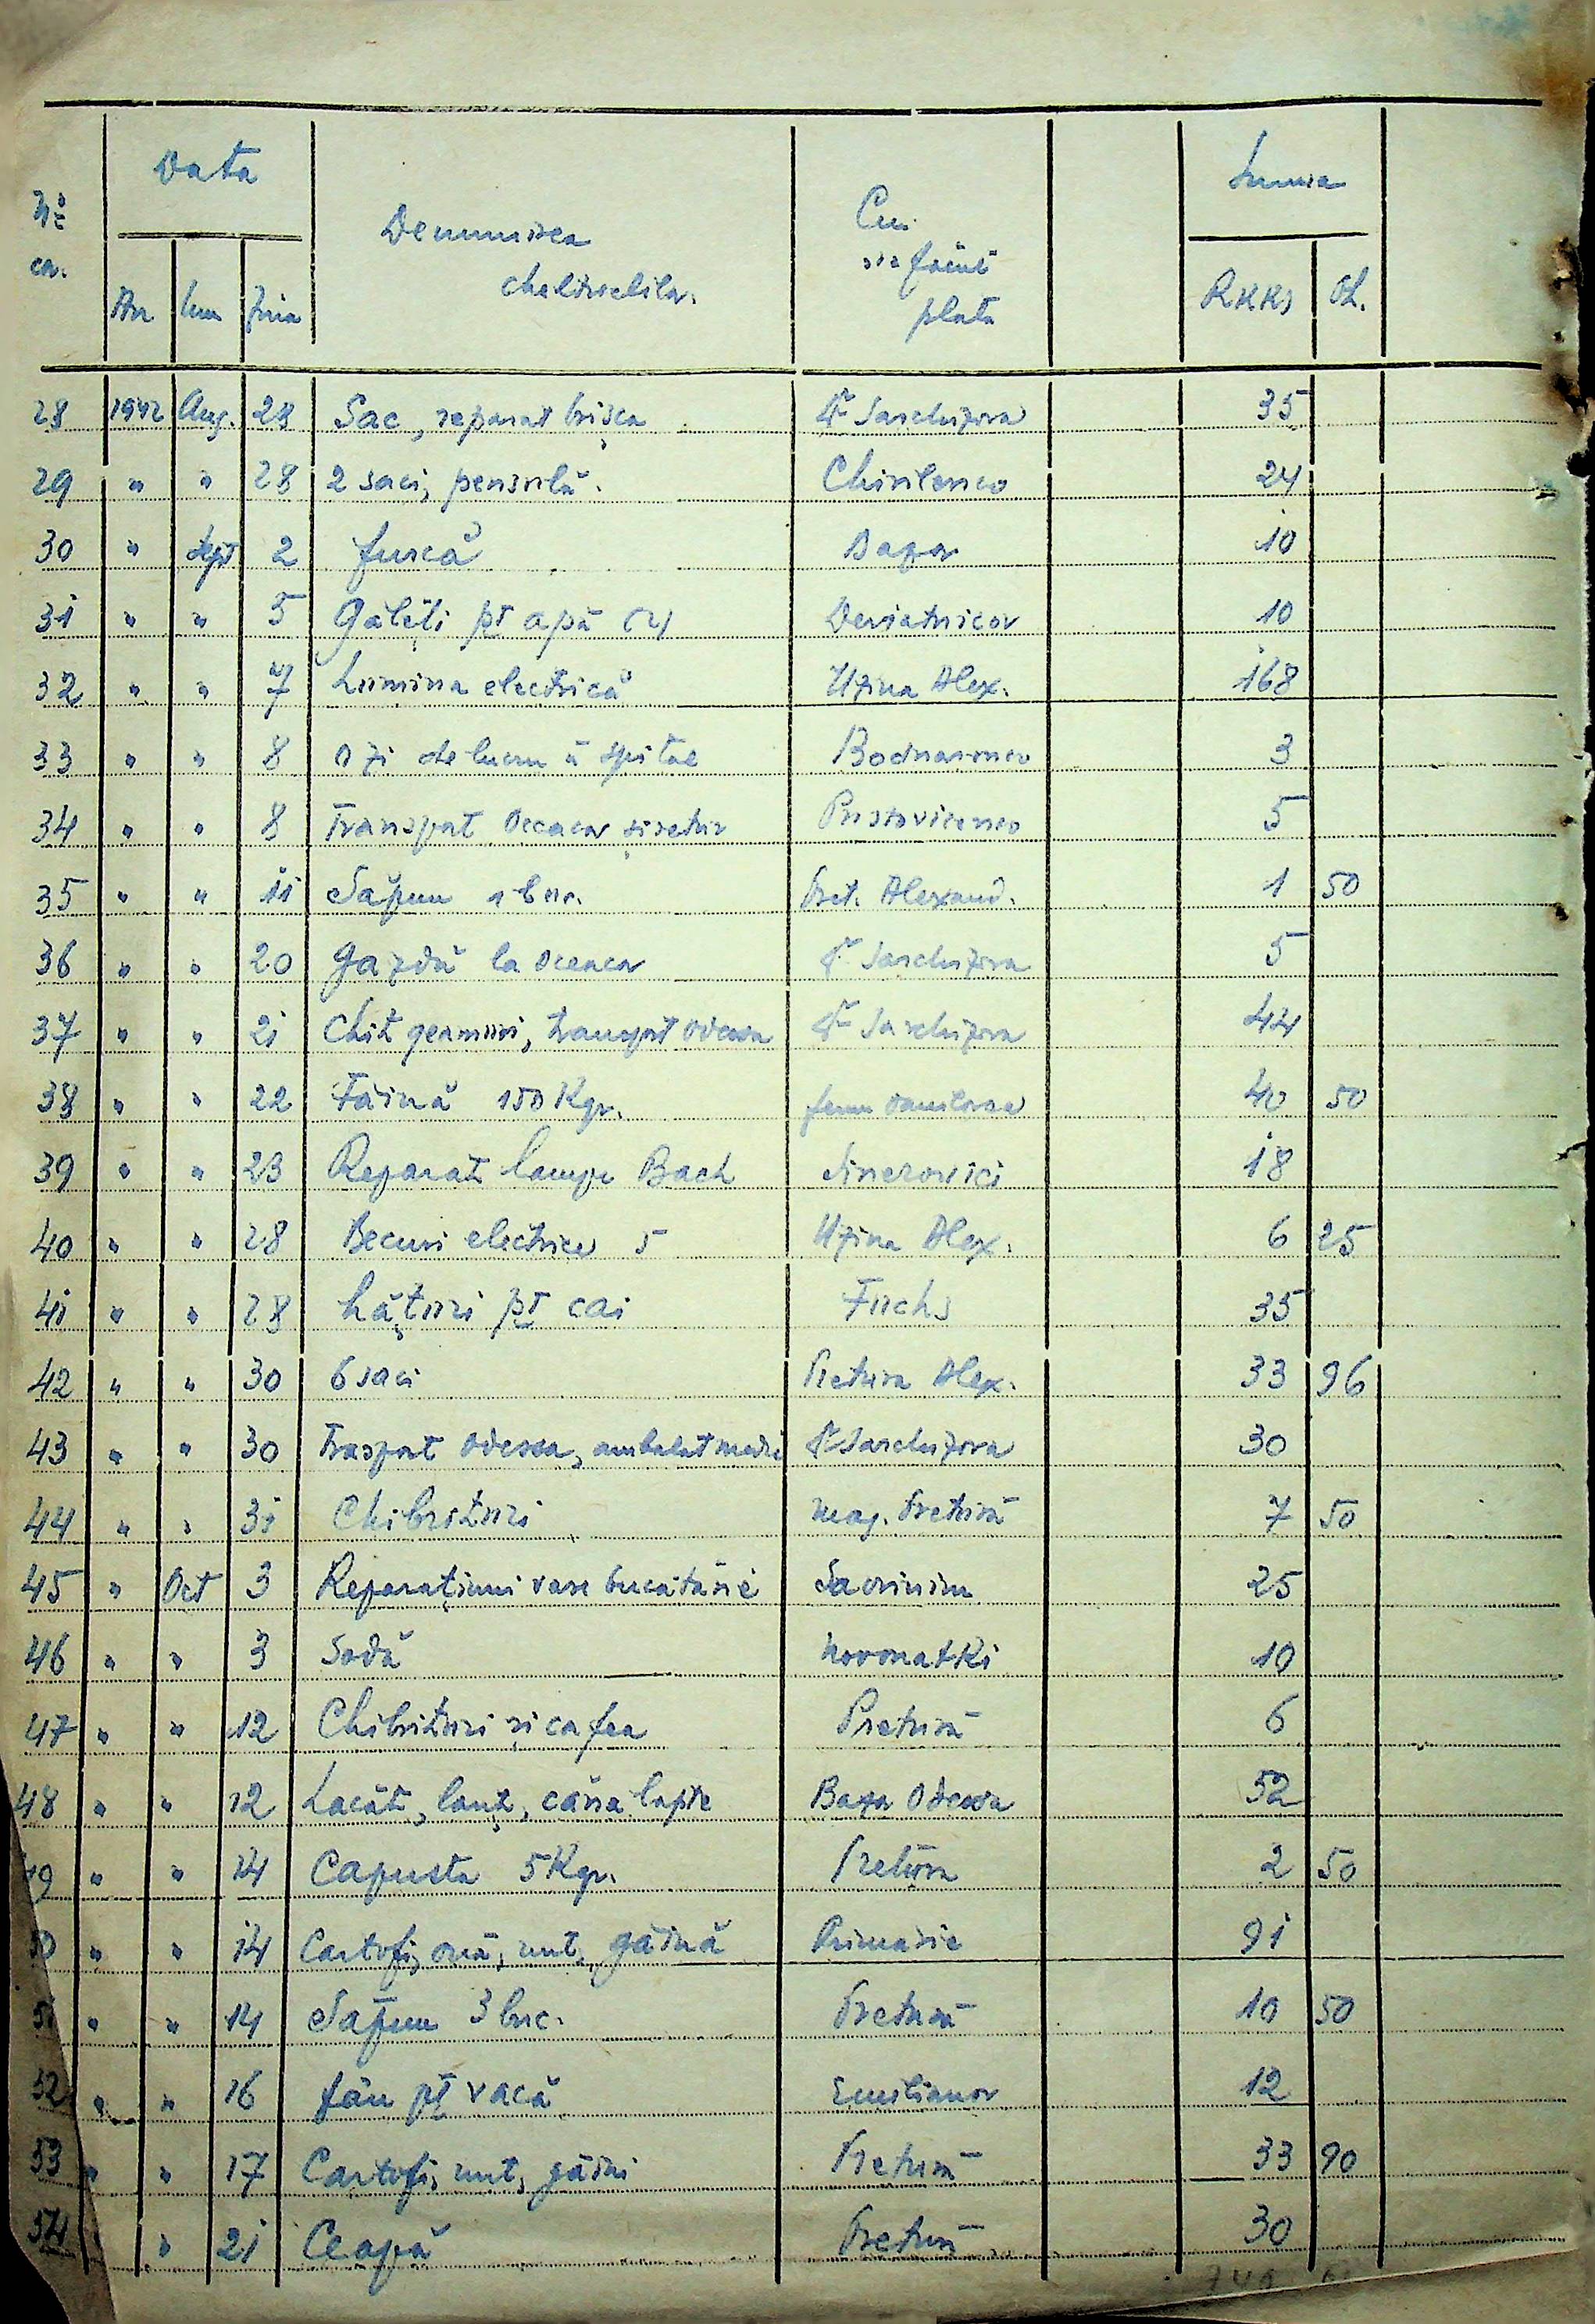 Data Suma
Nr. Denumirea Cui
cr. cheltuelilor. s'a făcut
An Luna Ziua plata RKKS
28 1942 Aug. 28 Sac, reparat brișca Dr Saschizova 35
29 " " 28 2 saci, pensulă. Chirilenco 24
30 " Sept 2 furcă Bazar 10
31 " " 5 Găleți pt apă (2) Deviatnicov 10
32 " " 7 Lumina electrică Uzina Alex. 168
33 " " 8 o zi de lucru la spital Bodnarenco 3
34 " " 8 Transport Oceacov și retur Pustovicenco 5
35 " " 11 Săpun 1 buc. Pret. Alexand. 1 50
36 " " 20 Gazdă la Oceacov Dr Saschizova 5
37 " " 21 Chit geamuri, transport Odessa Dr Saschizova 44
38 " " 22 Făină 150 Kgr. 40 50
39 " " 23 Reparat lampa Bach Sinerovici 18
40 " " 28 Becuri electrice 5 Uzina Alex. 6 25
41 " " 28 Hățuri pt cai Fuchs 35
42 " " 30 6 saci Pretura Alex. 33 96
43 " " 30 Trasport Odessa, ambalat medic Dr Saschizova 30
44 " " 31 Chibrituri Mag. Pretură 7 50
45 " Oct 3 Reparațiuni vase bucătărie 25
46 " " 3 Sodă Novomatki 10
47 " " 12 Chibrituri și cafea Pretură 6
48 " " 12 Lacăt, lanț, căna lapte Bazar Odessa 52
49 " " 14 Capusta 5 Kgr. Pretura 2 50
50 " " 14 Cartofi, ouă, unt, găină Primărie 91
51 " " 14 Săpun 3 buc. Pretură 10 50
52 " " 16 fân pt vacă Emilianov 12
53 " " 17 Cartofi, unt, găini Pretură 33 90
54 " 21 Ceapă Pretură 30